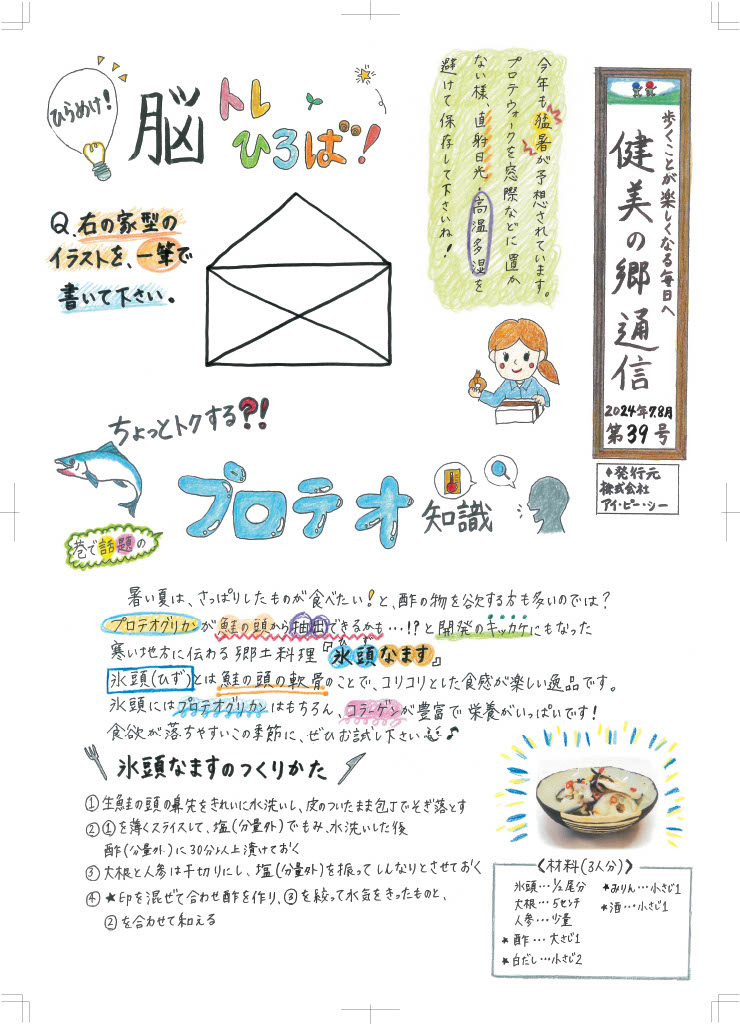 歩くことが楽しくなる毎日へ
健美の郷通信
2024年7.8月
第39号
◆発行元
株式会社
アイ・ピー・シー
今年も猛暑が予想されています。
プロテウォークを窓際などに置か
ない様、直射日光・高温多湿を
避けて保存して下さいね!
ひらめけ!
脳トレ
ひろば!
Q.右の家型の
イラストを、一筆で
書いて下さい。
ちょっとトクする?!
巷で話題の
プロテオ知識
暑い夏は、さっぱりしたものが食べたい!と、酢の物を欲する方も多いのでは?
プロテオグリカンが鮭の頭から抽出できるかも…!?と開発のキッカケにもなった
寒い地方に伝わる郷土料理『氷頭なます』
ひず
氷頭(ひず)とは鮭の頭の軟骨のことで、コリコリとした食感が楽しい逸品です。
氷頭にはプロテオグリカンはもちろん、コラーゲンが豊富で栄養がいっぱいです!
食欲が落ちやすいこの季節に、ぜひお試し下さい♪
氷頭なますのつくりかた
①生鮭の頭の鼻先をきれいに水洗いし、皮のついたまま包丁でそぎ落とす
②①を薄くスライスして、塩(分量外)でもみ、水洗いした後
酢(分量外)に30分以上漬けておく
③大根と人参は千切りにし、塩(分量外)を振ってしんなりとさせておく
④★印を混ぜて合わせ酢を作り、③を絞って水気をきったものと、
②を合わせて和える
〈材料(3人分)〉
氷頭…1/2尾分
大根…5センチ
人参…少量
★酢…大さじ1
★白だし…小さじ2
★みりん…小さじ1
★酒…小さじ1